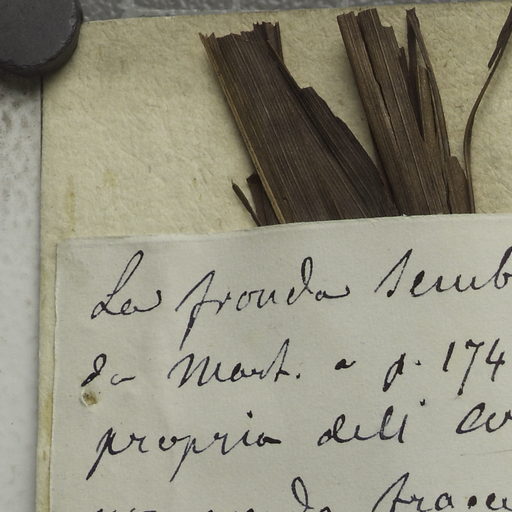 La fronda semb
da Mart. a p. 174
propria dell'